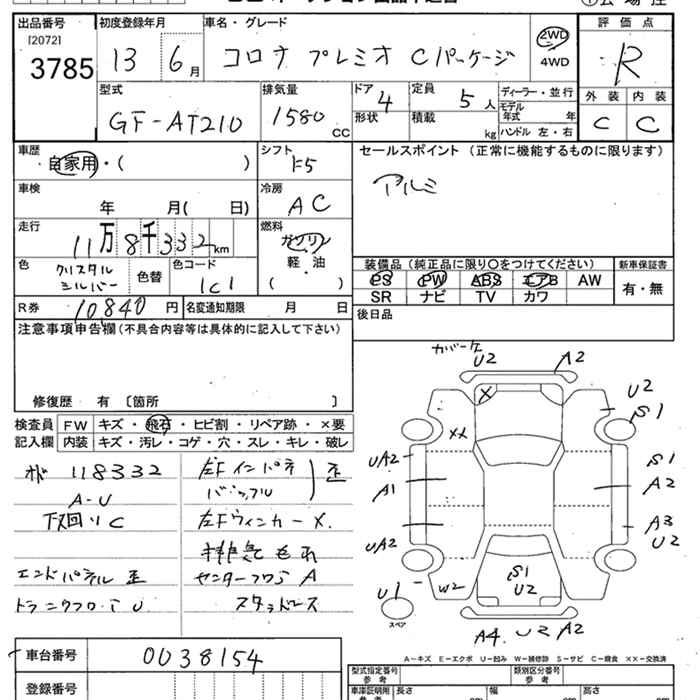 出品番号
[2072]
3785
初度登録年月
13 6月
車名・グレード
コロナ プレミオ Cパッケージ
2WD
4WD
評価点
R
外装 内装
C C
型式
GF-AT210
排気量
1580 CC
ドア 4
形状
定員 5人
積載 kg
ディーラー・並行
モデル年式 年
ハンドル 左・右
車歴
自家用・( )
シフト
F5
セールスポイント (正常に機能するものに限ります)
アルミ
車検
年 月( 日)
冷房
AC
走行
11万8千332km
燃料
ガソリン
軽・油
( )
色
クリスタルシルバー
色替
色コード
1C1
装備品 (純正品に限り○をつけてください)
PS PW ABS エアB AW
SR ナビ TV カワ
新車保証書
有・無
R券 10840円
名変通知期限 月 日
後日品
注意事項申告欄(不具合内容等は具体的に記入して下さい)
修復歴 有 〔箇所 〕
検査員
記入欄
FW キズ・飛石・ヒビ割・リペア跡・×要
内装 キズ・汚レ・コゲ・穴・スレ・キレ・破レ
118332
A-U
下回りC
エンドパネル 歪
トランクフロアU
左Fインパネ
歪
左Fウィンカー×.
排気もれ
A
スタッドレス
U2
A2
X
XX
U2
S1
UA2
A1
S1
A2
UA2
A3
U2
U1
スペア
W2
S1
U2
A4. U2 A2
A-キズ E-エクボ U-凹み W-補修跡 S-サビ C-腐食 ××-交換済
車台番号
0038154
登録番号
型式指定番号
参考
類別区分番号
参考
車庫証明用
参考
長さ
幅
高さ